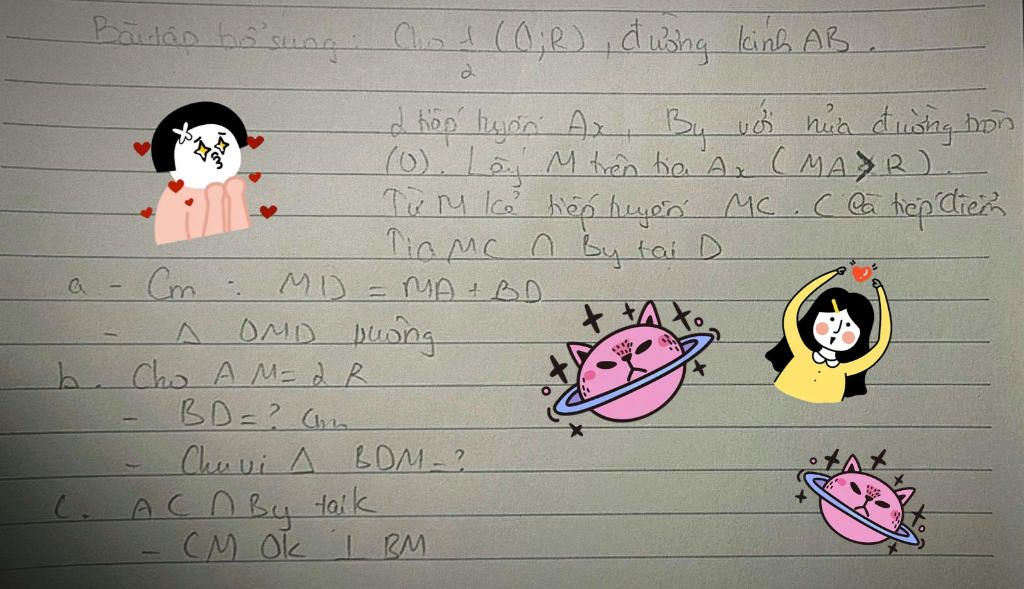 Bài tập bổ sung : Cho 1/2 (O;R), đường kính AB.
2 tiếp tuyến Ax, By với nửa đường tròn
(O). Lấy M trên tia Ax (MA > R).
Từ M kẻ tiếp tuyến MC. C là tiếp điểm
Tia MC ∩ By tại D
a - Cm : MD = MA + BD
- Δ OMD vuông
b. Cho AM = 2R
- BD = ? cm
- Chu vi Δ BDM = ?
c. AC ∩ By tại K
- CM OK ⊥ BM